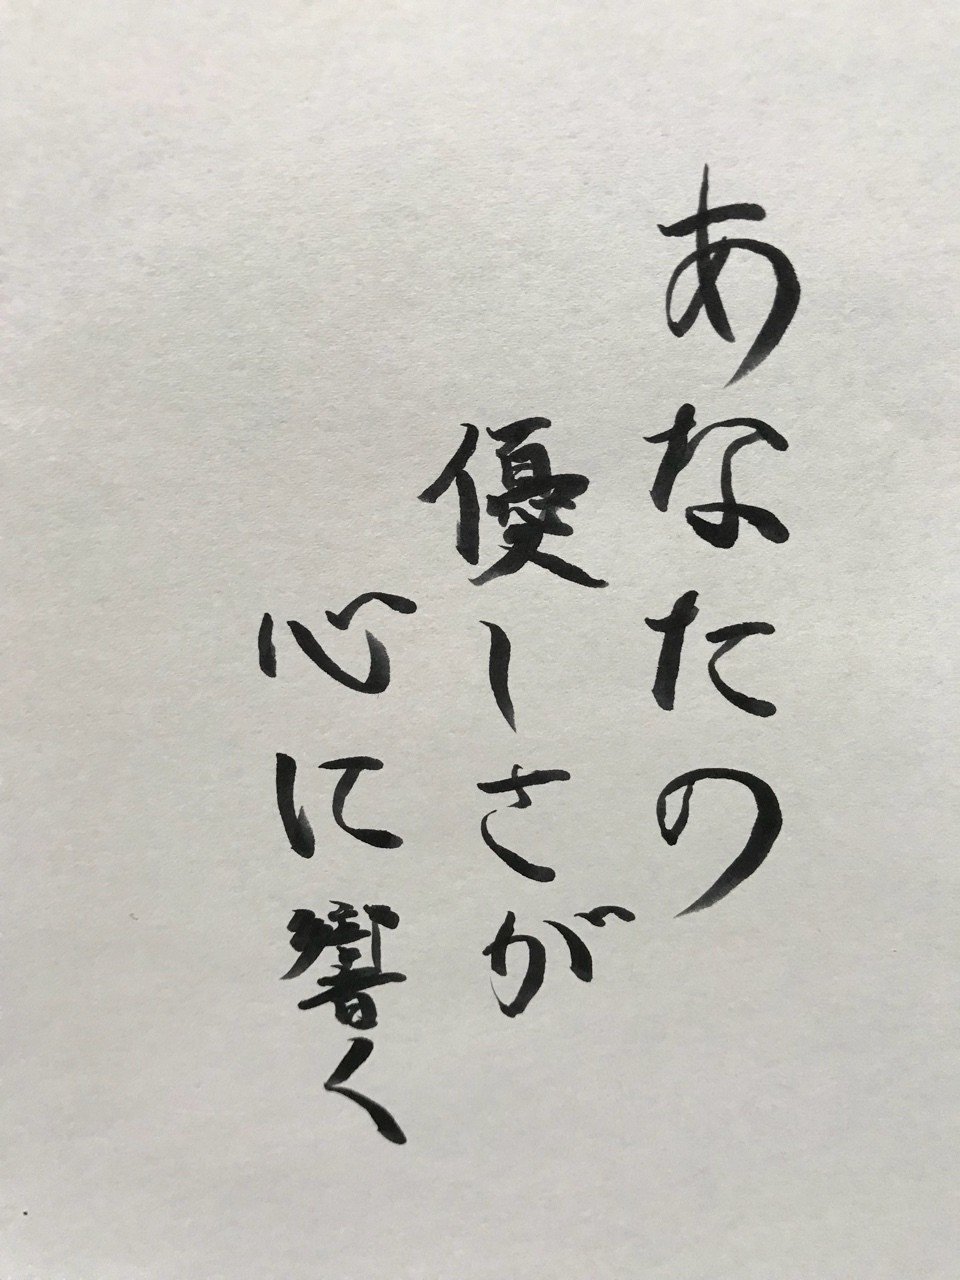 あなたの
優しさが
心に響く